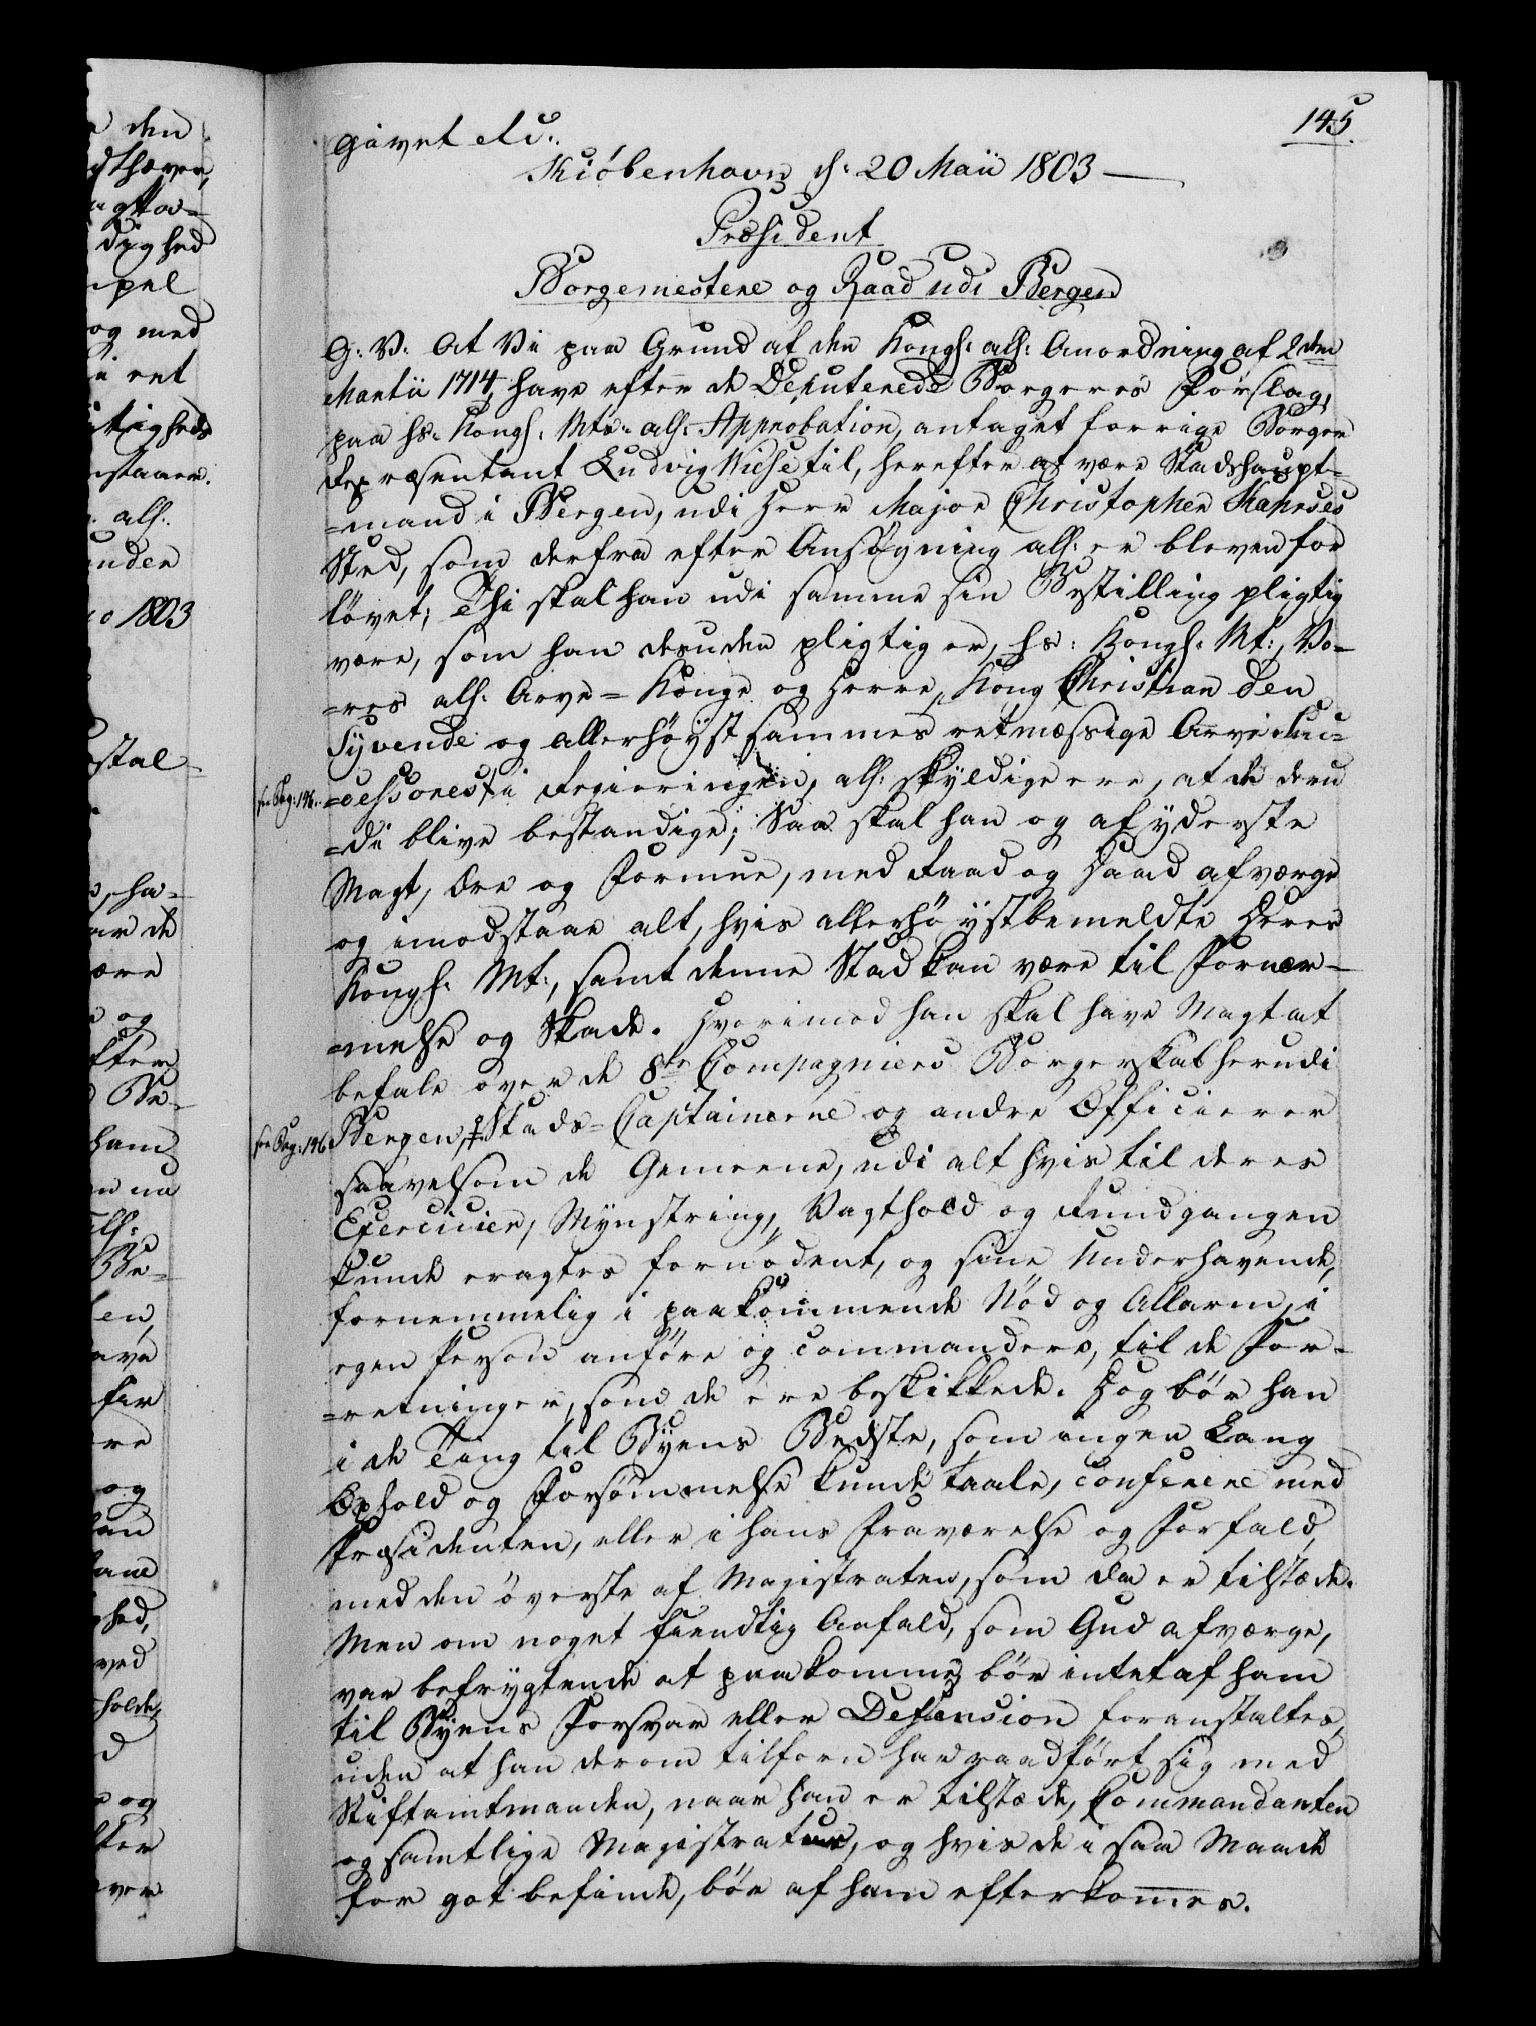 145
givet etc:
Kiöbenhavn d: 20 Maii 1803 —
Præsident
Borgemestere og Raad udi Bergen
G: V: At Vi paa Grund af den Kongl: all: Anordning af 2den
Martii 1714, have efter de Deputerede Borgeres Forslag,
paa hs: Kongl: Mts: all: Approbation, antaget forrige Borger
Repræsentant Ludvig Wiese til, herefter at være Stadshaupt=
=mand i Bergen, udi Herr Major Christopher Kahrses
Sted, som derfra efter Ansøgning all: er bleven for
løvet; Thi skal han udi samme sin Bestilling pligtig
være, som han desuden pligtig er, hs: Kongl: Mt:, Vo=
=res all: Arve=Konge og Herre, Kong Christian den
Syvende og allerhøystsammes retmæssige Arve Suc=
=cessores i Regieringen, all: skyldige ere, at de deru
=di blive bestandige; Saa skal han og af yderste
Magt, Ære og Formue, med Raad og Daad afværge
og imodstaae alt, hvis allerhøystbemeldte Deres
Kongl: Mt:, samt denne Stad kan være til Fornær=
=melse og Skade. Hvorimod han skal have Magt at
befale over de 8te Compagniers Borgerskab herudi
Bergen, Stads=Captainerne og andre Officierer
saavelsom de Gemeene, udi alt hvis til deres
Exercicier, Mynstring, Vagthold og Rundgangen
kunde eragtes fornødent, og sine Underhavende,
fornemmelig i paakommende Nød og Allarm, i
egen Person anføre og commandere, til de For=
=retninger, som de ere beskikkede. Dog bør han
i de Ting til Byens Bedste, som ingen Lang
Ophold og Forsømmelse kunde taale, conferere med
Præsidenten, eller i hans Fraværelse og Forfald,
med den øverste af Magistraten, som da er tilstæde.
Men om noget fiendtlig Anfald, som Gud afværge,
var befrygtende at paakomme, bør intet af ham
til Byens Forsvar eller Defension foranstaltes,
uden at han derom tilforn har raadført sig med
Stiftamtmanden, naar han er tilstæde, Commandanten
og samtlige Magistraten, og hvis de i saa Maade
for got befinde, bør af ham efterkommes.
see Pag: 146.
see Pag: 146